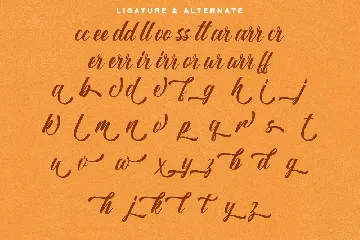 LIGATURE & ALTERNATE
cc ee dd ll oo ss tt ar arr cr
er err ir irr or ur urr ff
a b d d f g h i j
k l m n o p q r s t
u v w x y z b d g
h j k l t y z